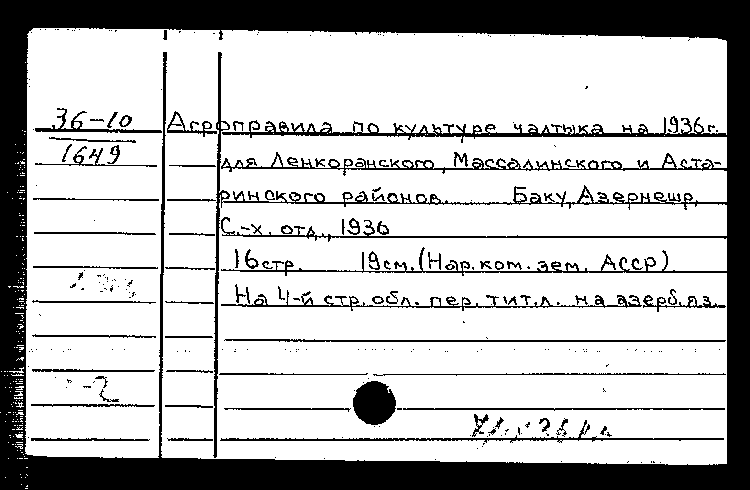 36-10
1649
Агроправила по культуре чалтыка на 1936г.
для Ленкоранского, Массалинского и Аста-
ринского районов. Баку, Азернешр,
С.-х. отд., 1936
16стр. 19см. (Нар.ком.зем. АССР)
На 4-й стр. обл. пер. тит.л. на азерб.яз.
-2